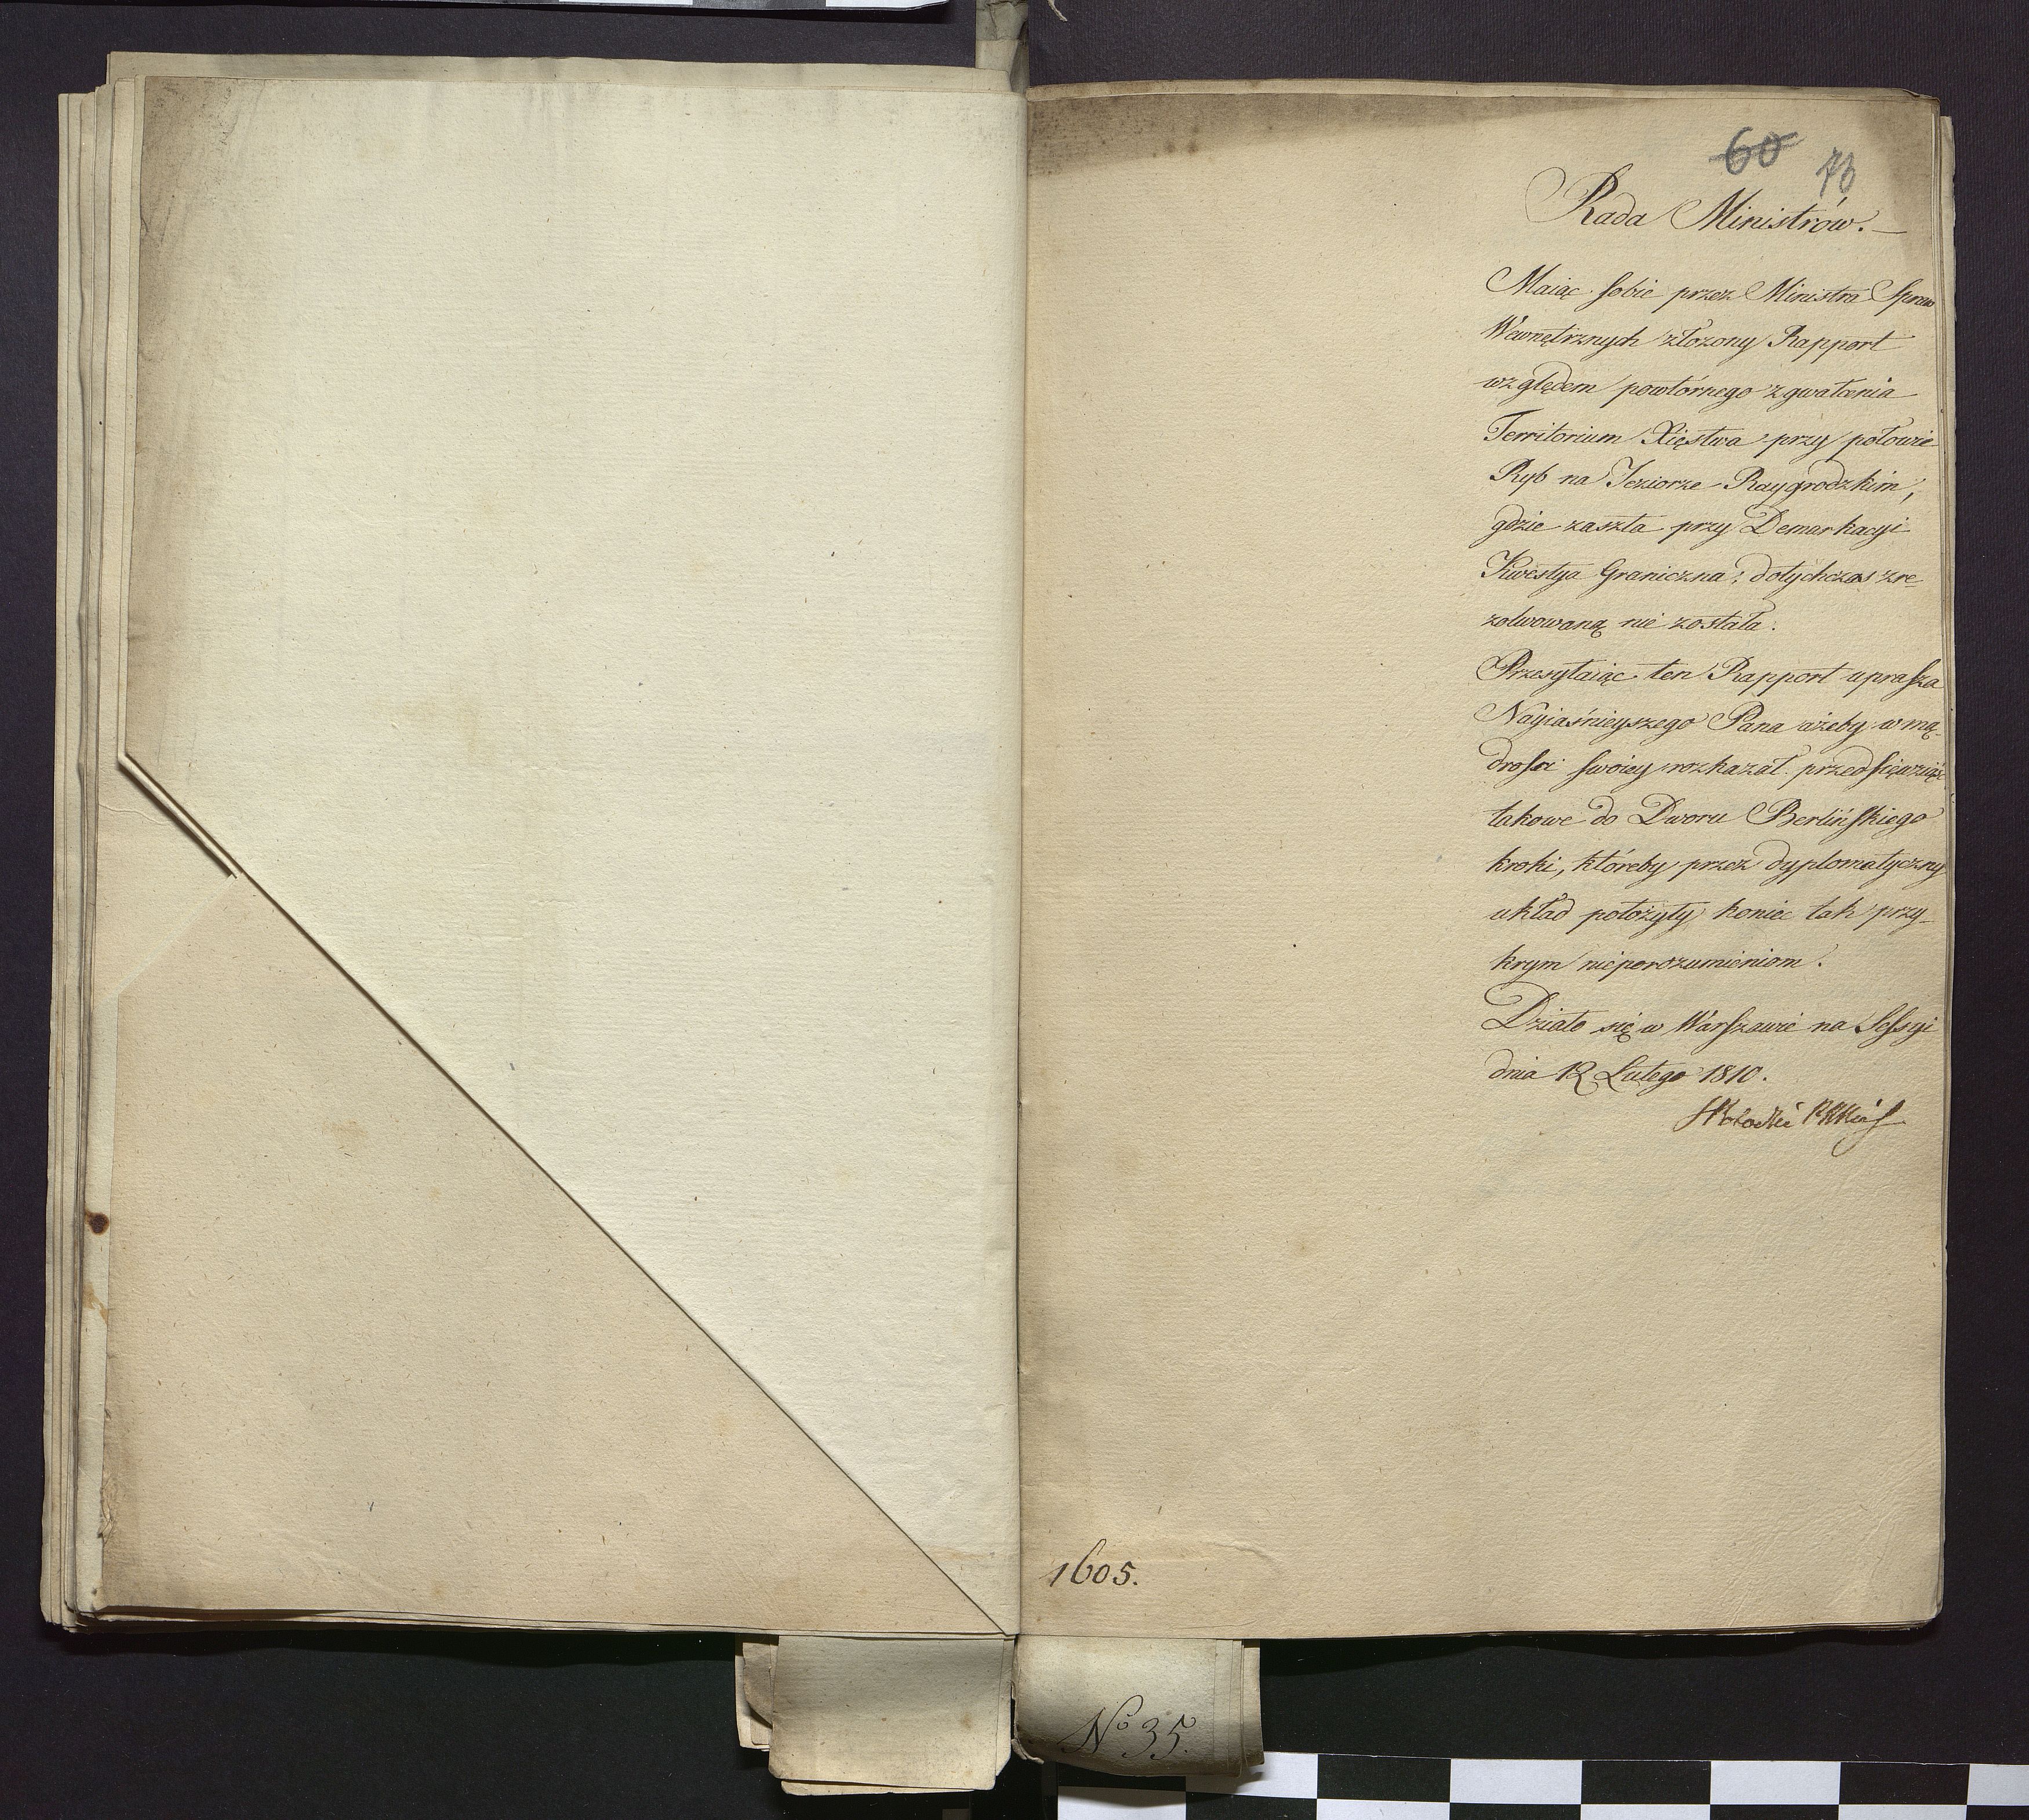 60 70
Rada Ministrów.
Maiąc sobie przez Ministra Spraw
Wewnętrznych złożony Rapport
względem powtórnego zgwałcenia
Territorium Xięstwa przy połowie
Ryb na Jeziorze Raygrodzkim,
gdzie zaszła przy Demarkacyi
Kwestya Graniczna, dotychczas zre-
zolwowaną nie została.
Przesyłaiąc ten Rapport uprasza
Nayiaśnieyszego Pana ażeby w mą-
drości swoiey rozkazał przedsięwziąść
takowe do Dworu Berlińskiego
kroki, któreby przez dyplomatyczny
układ położyły koniec tak przy-
krym nieporozumieniom.
Działo się w Warszawie na Sessyi
dnia 12 Lutego 1810.
1605.
No 35.